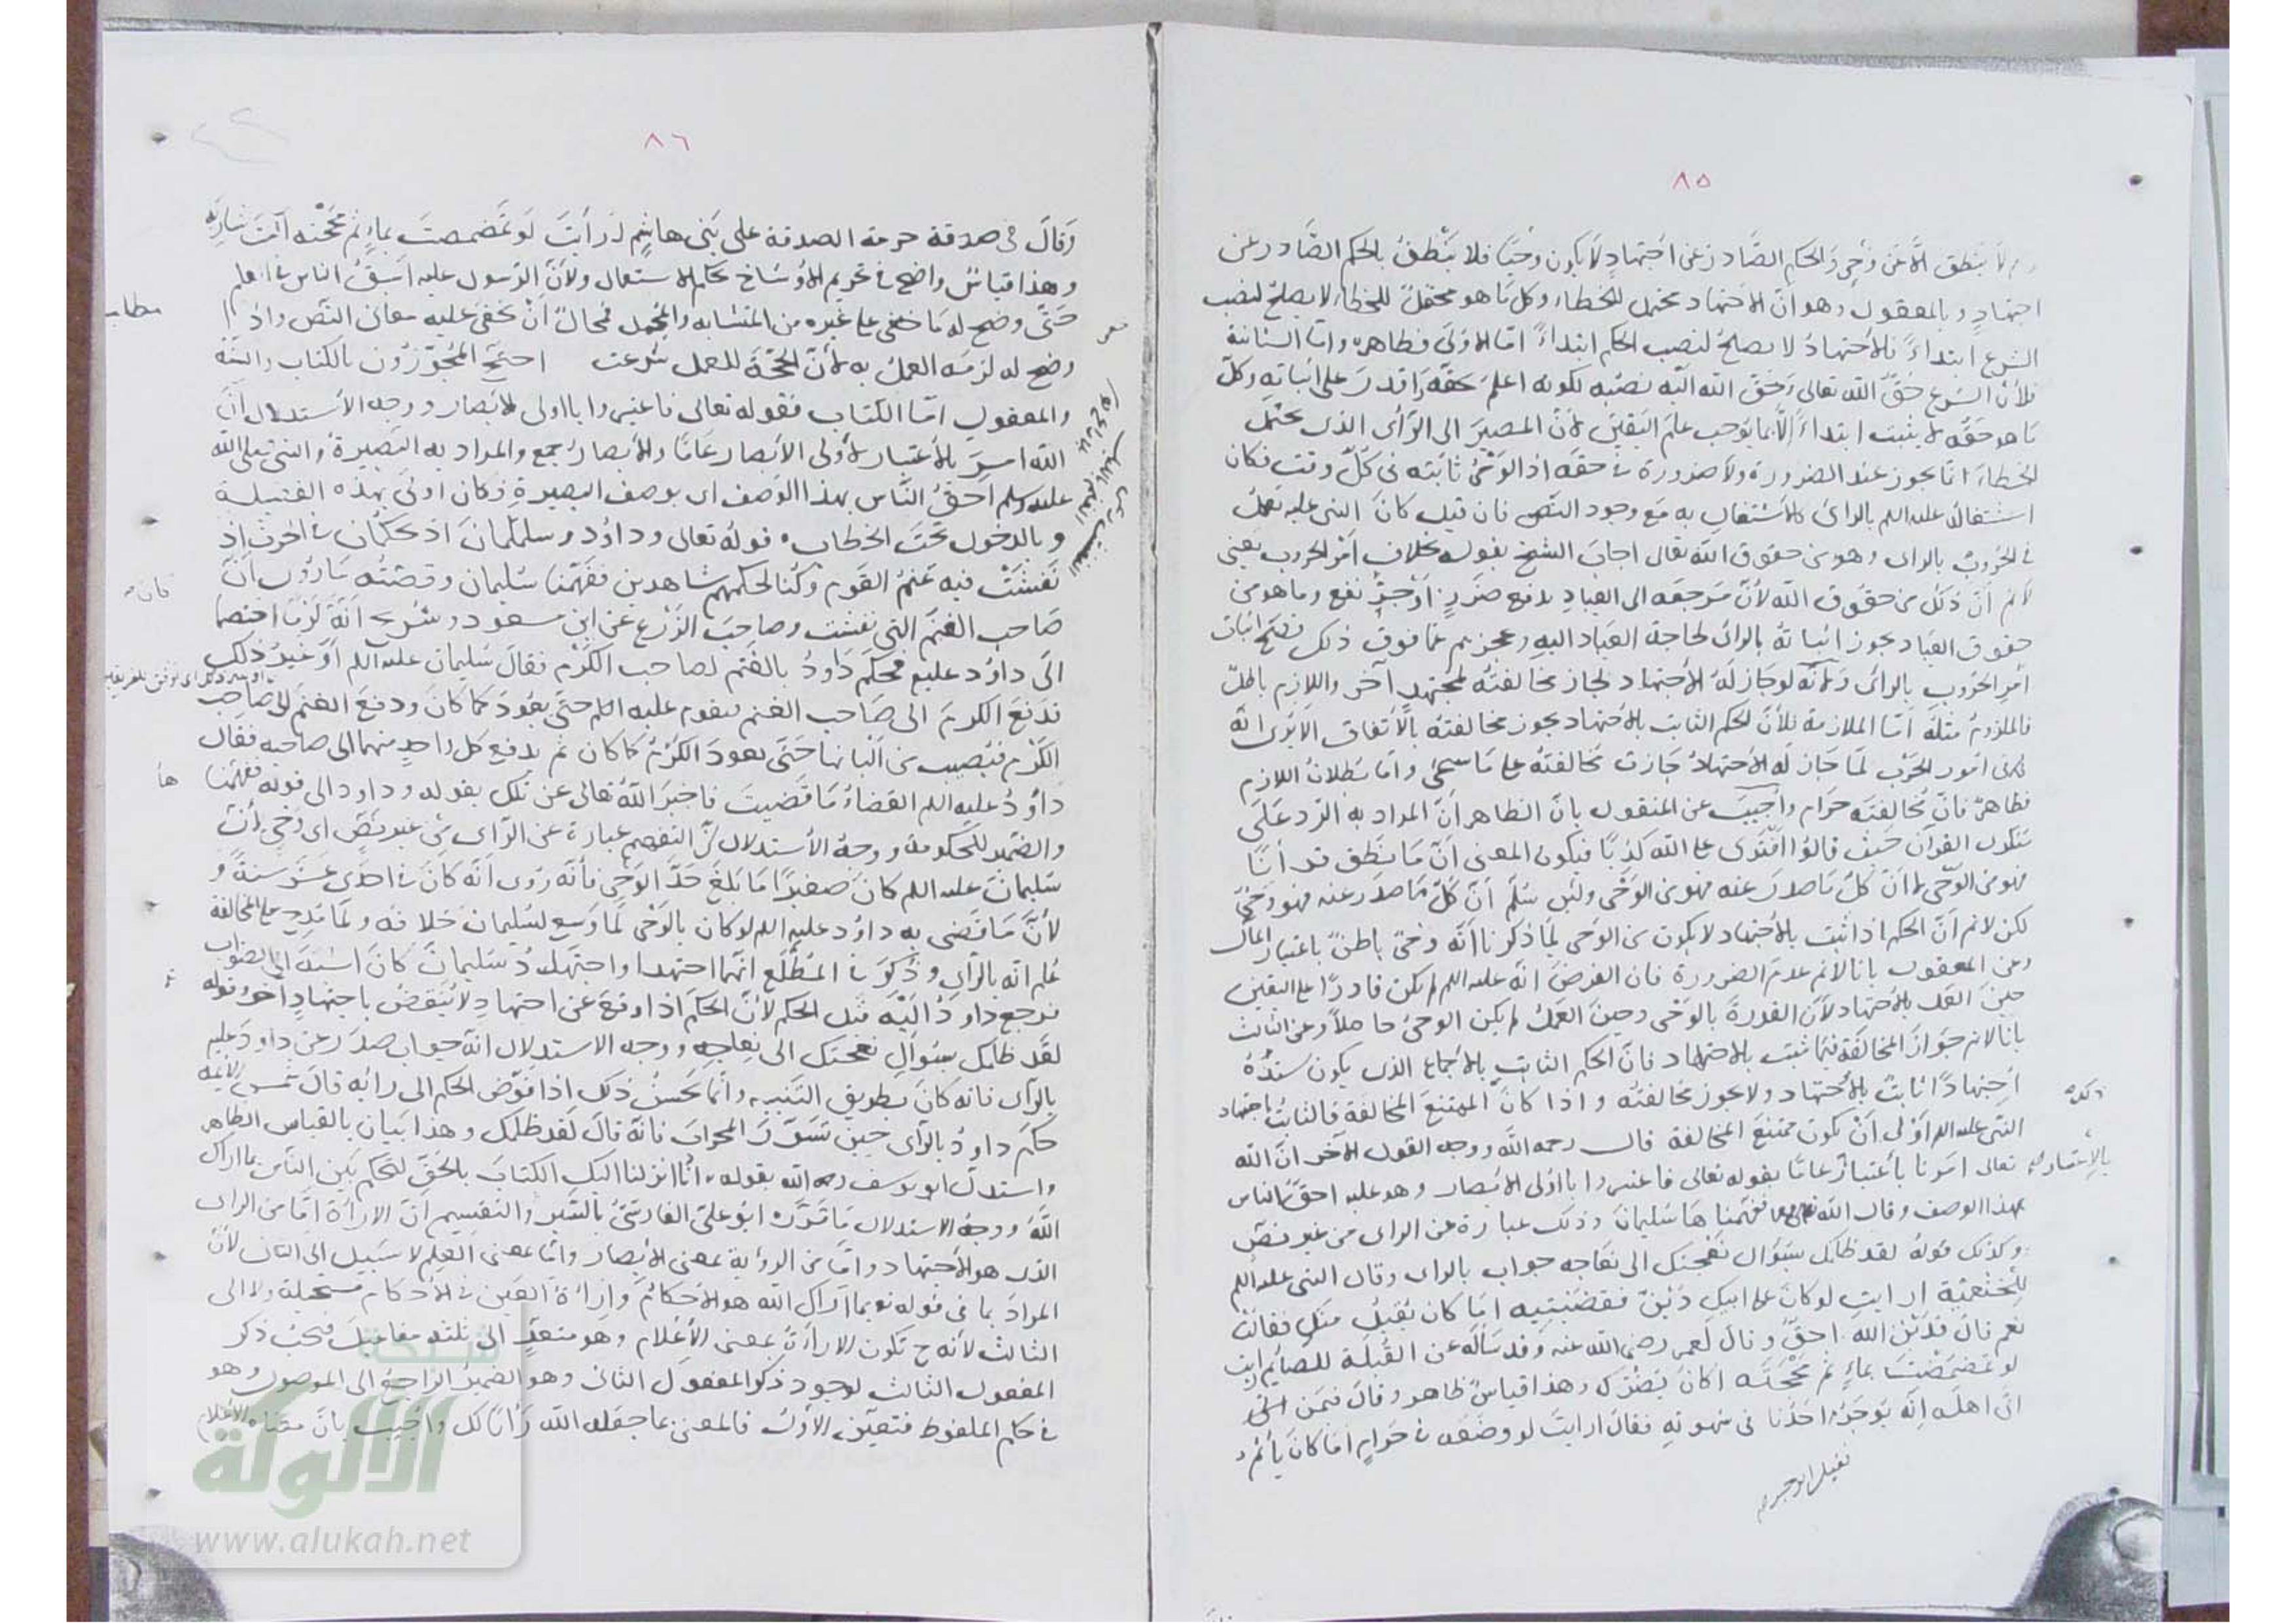 ٨٥
لا ينطق الا عن وحي والحكم الصادر عن اجتهاد لا يكون وحيا فلا ينطق بالحكم الصادر عن
اجتهاد وبالمعقول وهو ان الاجتهاد محتمل للخطاء وكل ما هو محتمل للخطاء لا يصلح لنصب
الشرع ابتداء فالاجتهاد لا يصلح لنصب الحكم ابتداء اما الاولى فظاهره واما الثانية
فلان الشرع حق الله تعالى وحق الله اليه نصبه لكونه اعلم بحقه واقدر على اثباته وكل
ما هو حقه لا يثبت ابتداء الا بما يوجب علم اليقين لان المصير الى الرأى الذى يحتمل
الخطاء انما يجوز عند الضرورة ولا ضرورة في حقه اذ الوحى ثابته فى كل وقت فكان
اشتغاله عليه السلم بالراى كالاشتغال به مع وجود النص فان قيل كان النبى عليه يعمل
في الحروب بالراى وهو من حقوق الله تعالى اجاب الشيخ بقوله بخلاف امر الحروب يعنى
لا نم ان ذلك من حقوق الله لان مرجعه الى العباد بدفع ضرر او جر نفع وما هو من
حقوق العباد يجوز اثباته بالراى لحاجة العباد اليه وعجزهم عما فوق ذلك فصح اثبات
امر الحروب بالراى ولانه لو جاز له الاجتهاد لجاز مخالفته لمجتهد آخر واللازم باطل
فالملزوم مثله اما الملازمة فلان الحكم الثابت بالاجتهاد يجوز مخالفته بالاتفاق الا يرى انه
فى امور الحرب لما جاز له الاجتهاد جازت مخالفته على ما سيجئ واما بطلان اللازم
فظاهر فان مخالفته حرام واجيب عن المنقول بان الظاهر ان المراد به الرد على
منكرى القرآن حيث قالوا افترى على الله كذبا فيكون المعنى ان ما نطق قرآنا
فهو من الوحى لا ان كل ما صدر عنه فهو من الوحى ولئن سلم ان كل ما صدر عنه فهو وحى
لكن لا نم ان الحكم اذا ثبت بالاجتهاد لا يكون من الوحى لما ذكرنا انه وحى باطن باعتبار المآل
وعن المعقول بانا لا نم عدم الضرورة فان الفرض انه عليه السلم لم يكن قادرا على اليقين
حين العمل بالاجتهاد لان القدرة بالوحى وحين العمل لم يكن الوحى حاصلا وعن الثالث
بانا لا نم جواز المخالفة فيما ثبت بالاجتهاد فان الحكم الثابت بالاجماع الذى يكون سنده
اجتهادا ثابت بالاجتهاد ولا يجوز مخالفته واذا كان الممتنع المخالفة فالثابت باجتهاد
النبى عليه السلم اولى ان يكون ممتنع المخالفة قال رحمه الله ووجه القول الآخر ان الله
تعالى امرنا باعتبار عاما بقوله تعالى فاعتبروا يا اولى الابصار وهو عليه احق الناس
بالاعتبار
بهذا الوصف وقال الله تعالى ففهمنا ها سليمان وذلك عبارة عن الراى من غير نص
وكذلك قوله لقد ظلمك بسؤال نعجتك الى نعاجه جواب بالراى وقال النبى عليه السلم
للخثعمية ارايت لو كان على ابيك دين فقضيتيه اما كان يقبل منك فقالت
نعم قال فدين الله احق وقال لعمر رضى الله عنه وقد سأله عن القبلة للصائم ارايت
لو تمضمضت بماء ثم مججته اكان يضرك وهذا قياس ظاهر وقال فيمن اتى
اتى اهله انه يؤجر احدنا فى شهوته فقال ارايت لو وضعه في حرام اما كان يأثم
٨٦
وقال فى صدقة حرمة الصدقة على بنى هاشم ارأيت لو تمضمضت بماء ثم مججته أكنت شاربه
وهذا قياس واضح في تحريم الاوساخ بحكم الاستعمال ولان الرسول عليه اسبق الناس في العلم
حتى وضح له ما خفى على غيره من المتشابه والمجمل فمحال ان يخفى عليه معانى النص واذا
وضح له لزمه العمل به لان الحجة للعمل شرعت احتج المجوزون بالكتاب والسنة
والمعقول اما الكتاب فقوله تعالى فاعتبروا يا اولى الابصار ووجه الاستدلال ان
الله امر بالاعتبار لاولى الابصار عاما والابصار جمع والمراد به البصيرة والنبى صلى الله
عليه وسلم احق الناس بهذا الوصف اى بوصف البصيرة فكان اولى بهذه الفضيلة
وبالدخول تحت الخطاب قوله تعالى وداود وسليمان اذ يحكمان في الحرث اذ
نفشت فيه غنم القوم وكنا لحكمهم شاهدين ففهمنا سليمان وقصته ما روى ان
صاحب الغنم التى نفشت وصاحب الزرع عن ابن مسعود وشريح انه كرما اختصما
الى داود عليه فحكم داود بالغنم لصاحب الكرم فقال سليمان عليه السلم او غير ذلك
تدفع الكرم الى صاحب الغنم ليقوم عليه السلم حتى يعود كما كان ودفع الغنم الى صاحب
الكرم فيصيب من البانها حتى يعود الكرم كما كان ثم يدفع كل واحد منهما الى صاحبه فقال
داود عليه السلم القضاء ما قضيت فاخبر الله تعالى عن تلك بقوله وداود الى قوله ففهمنا
ها
والضمير للحكومة ووجه الاستدلال ان التفهيم عبارة عن الراى من غير نص اى وحى لان
سليمان عليه السلم كان صغيرا ما بلغ حد الوحى فانه روى انه كان في احدى عشر سنة و
لان ما قضى به داود عليه السلم لو كان بالوحى لما وسع لسليمان خلافه ولما مدح على المخالفة
علم انه بالراى وذكر في المطلع انهما اجتهدا واجتهاد سليمان كان اشبه الى الصواب
فرجع داود اليه قبل الحكم لان الحكم اذا وقع عن اجتهاد لا ينقض باجتهاد آخر وقوله
لقد ظلمك بسؤال نعجتك الى نعاجه ووجه الاستدلال انه جواب صدر عن داود عليه
بالراى فانه كان بطريق التنبيه وانما يحسن ذلك اذا فوض الحكم الى رائه قال شمس الائمة
حكم داود بالراى حين تسور المحراب فانه قال لقد ظلمك وهذا بيان بالقياس الظاهر
واستدل ابو يوسف رحمه الله بقوله انا انزلنا اليك الكتاب بالحق لتحكم بين الناس بما اراك
الله ووجه الاستدلال ما قرره ابو على الفارسى بالسبر والتقسيم ان الاراءة اما من الراى
الذى هو الاجتهاد واما من الرؤية بمعنى الابصار واما بمعنى العلم لا سبيل الى الثانى لان
المراد بما فى قوله تع بما اراك الله هو الاحكام واراءة العين في الاحكام مستحيلة ولا الى
الثالث لانه ح تكون الاراءة بمعنى الاعلام وهو متعد الى ثلثه مفاعيل فيجب ذكر
المفعول الثالث لوجود ذكر المفعول الثانى وهو الضمير الراجع الى الموصول وهو
في حكم الملفوظ فتعين الاول فالمعنى بما جعله الله رأيا لك واجيب بان معناه الاعلام
شبكة
الألوكة
www.alukah.net